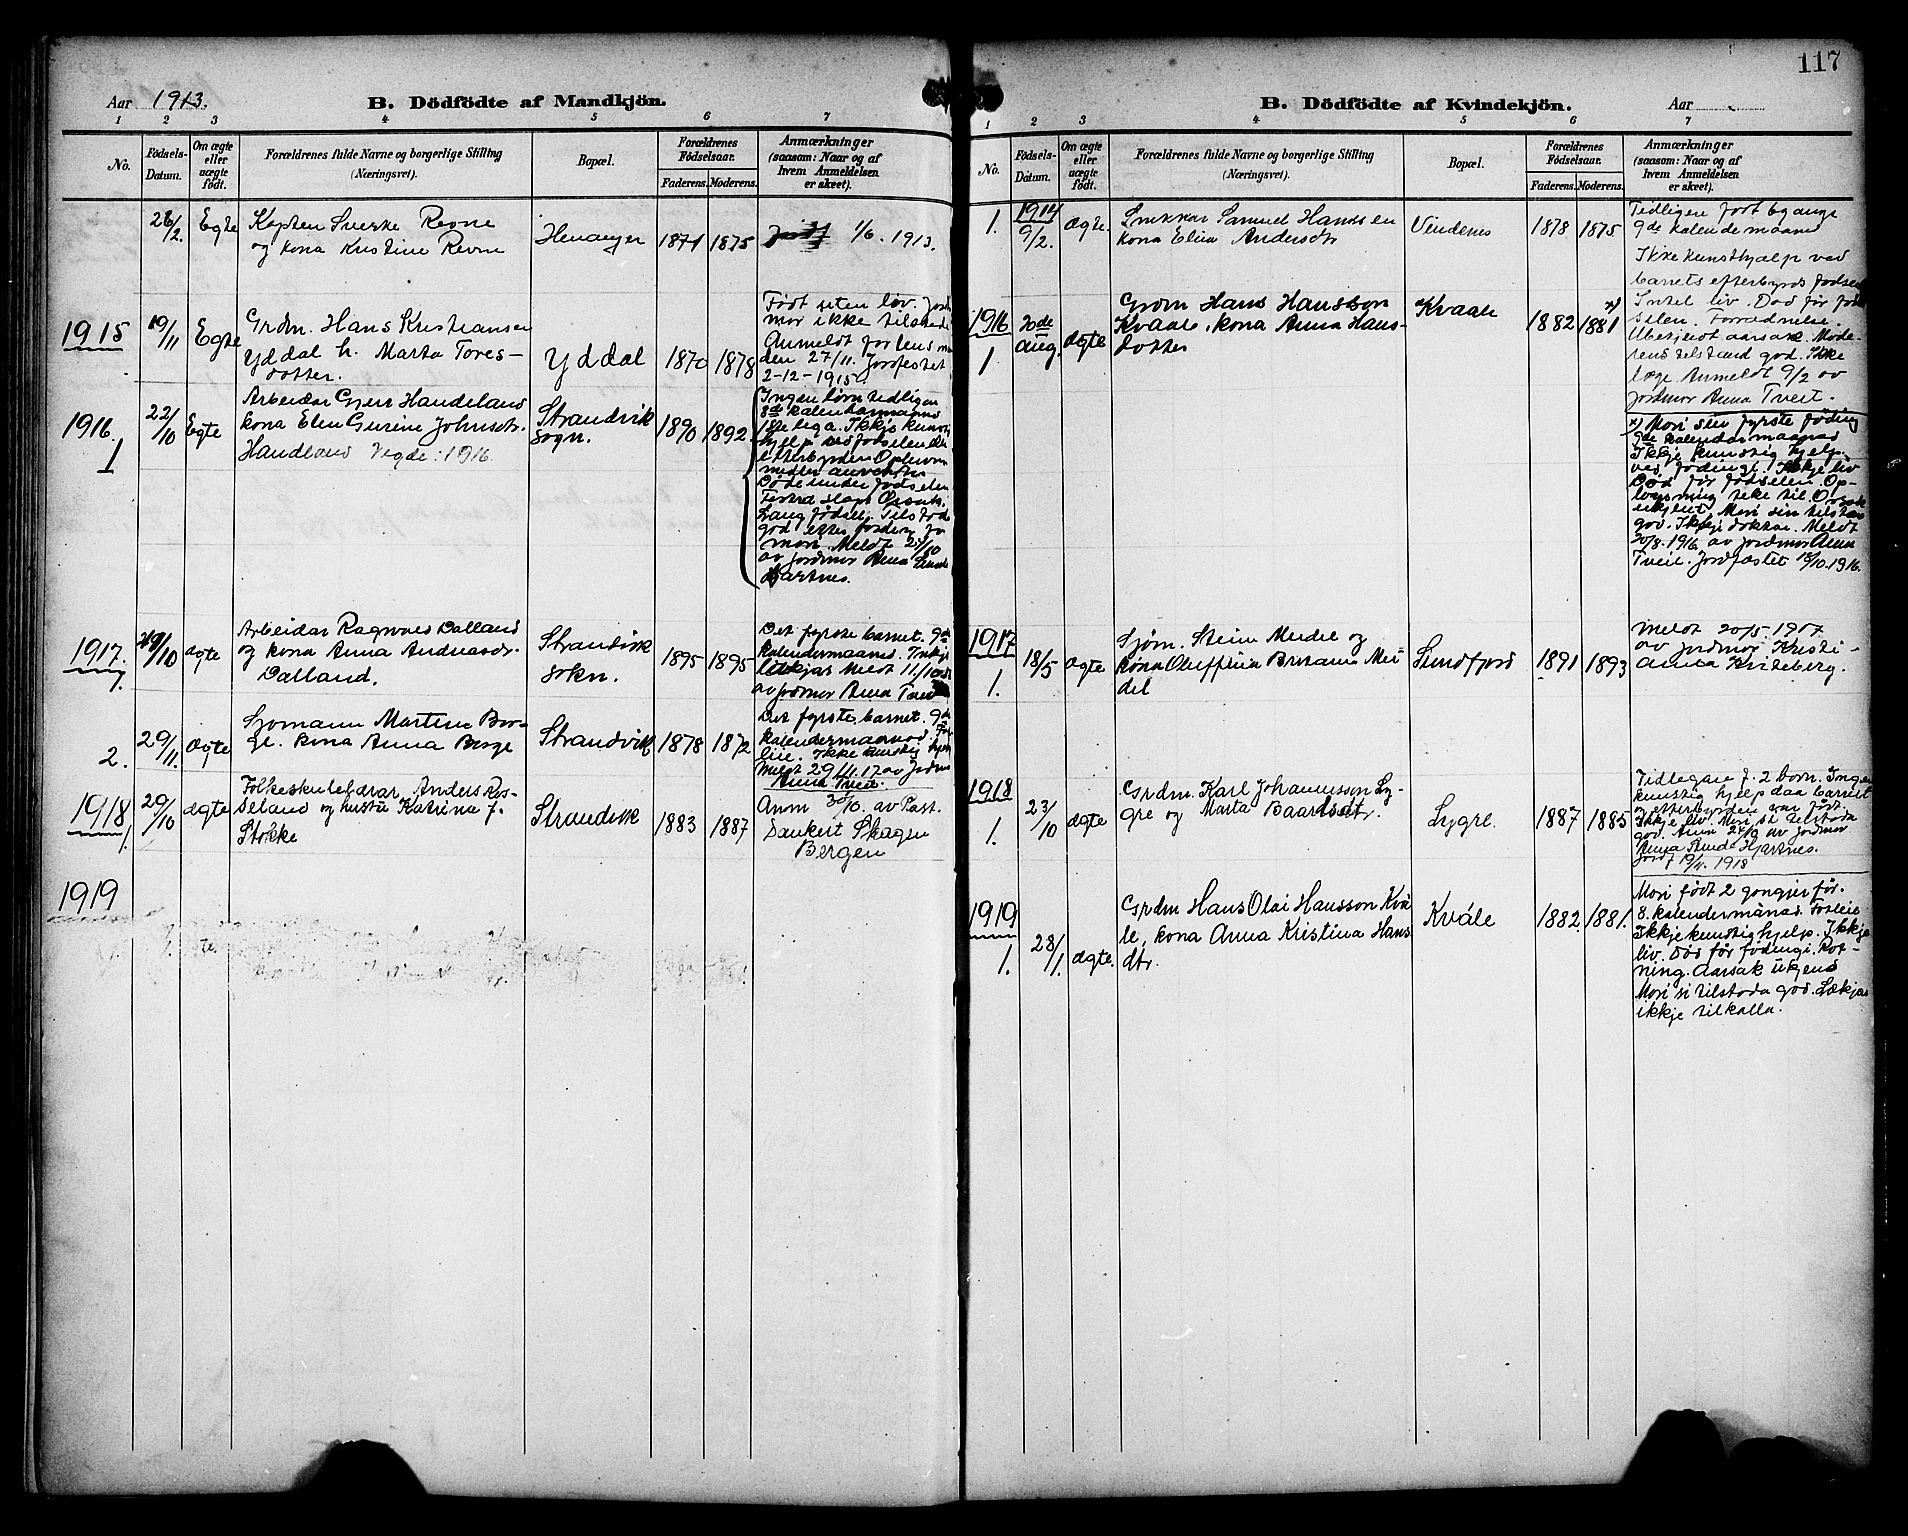 Aar 1913.
B. Dödfödte af Mandkjön.
1 2 3 4 5 6 7
No.
Födsels-Datum.
Om ægte eller uægte födt.
Forældrenes fulde Navne og borgerlige Stilling (Næringsvei).
Bopæl.
Forældrenes Födselsaar.
Faderens. Moderens.
Anmærkninger (saasom: Naar og af hvem Anmeldelsen er skeet).
26/2. Egte Kapten Sverke Revne
og kona Kristine Revne
Henanger 1871 1875 1/6. 1913.
1915 19/11 Egte Grdm. Hans Kristiansen
Yddal h. Marta Tores-
dotter.
Yddal 1870 1878
Født uten liv. Jord
mor ikke tilstede
Anmeldt for lensm
den 27/11. Jordfestet
2-12-1915.
1916. 1 22/10 Egte
Arbeidar Geirr Handeland
kona Elen Gurine Johnsdtr.
Handland Vegde: 1916.
Strandvik
sogn.
1890 1892.
Ingen børn tidligere
8de kalendarmaaned
lega. Ikkje kunstig
hjelp ved fødselen eller
efterbyrden Oplivnings
midler anvendtes
Døde under fødselen
Lang fødsel. Tilstand
god etter forder for
mori. Meldt 24/10
av jordmor Anna Lunde
Hjartnes.
1917. 1. 10 ægte
Arbeidar Ragnvald Dalland
og kona Anna Andreasdr.
Dalland.
Strandvik
sokn.
1895 1895
Det fyrste barnet. 9de
kalendermaaned.
Meldt 11/10
av jordmor Anna Tveit
2. 29/11. ægte
Sjømann Martin Ber-
ge. kona Anna Berge
Strandvik 1878 1872
Det fyrste barnet. 9de
kalendermaaned
leie. Ikke kunstig hjelp
Meldt 29/11. 17 av jordm
Anna Tveit.
1918 1. 29/10 ægte
Folkeskulelærar Anders Ros-
seland og hustru Katrina f.
Stokke
Strandvik 1883 1887
Anm 30/10. av Past.
Dankert Skagen
Bergen
1919
117
B. Dödfödte af Kvindekjön.
Aar
1 2 3 4 5 6 7
No.
Födsels-Datum.
Om ægte eller uægte födt.
Forældrenes fulde Navne og borgerlige Stilling (Næringsvei).
Bopæl.
Forældrenes Födselsaar.
Faderens. Moderens.
Anmærkninger (saasom: Naar og af hvem Anmeldelsen er skeet).
1. 1914 9/2. ægte. Snikkar Samuel Hanssen
kona Elina Andersdtr
Vindenes 1878 1875
Tidligere født 6 gange
9de kalendemaaned
Ikke kunsthjælp ved
barnets efterbyrds fødsen
Intet liv. Død før fød
selen. Forrædnelse.
Ubekjendt aarsak. Mode-
rens tilstand god. Ikke
læge. Anmeldt 9/2 av
Jordmor Anna Tveit.
1916 1 20de aug. ægte
Grdm Hans Hansson
Kvaale, kona Anna Hans-
dotter
Kvaale 1882 1881 x)
x) Mori sin fyrste føding
9de kalendermaanad
Ikkje kunstig hjelp
ved fødingi. Ikkje liv
Død før fødselen. Op-
løysning teke til. Orsak
ukjent. Mori sin tilstand
god. Ikkje dokter. Meldt
20/8. 1916 av jordmor Anna
Tveit. Jordfæstet 15/10. 1916.
1917 1. 18/5 ægte
Sjøm. Steim Meidel og
kona Oluffina Bertania Mei-
del
Sundfjord 1891 1893
Meldt 20/5. 1917
av jordmor Kristi-
anna Kviteberg.
1918 1. 23/10 ægte
Grdm. Karl Johannesson Ly-
gre og Marta Baardsdtr.
Lygre. 1887 1885
Tidlegare f. 2 born. Ingen
kunstig hjelp daa barnet
og efterbyrden var født.
Ikkje liv. Mori si tilstoda
god. Anm 24/10 av jordmor
Anna Lunde Hjartnes.
Jordf 19/11. 1918
1919 1. 28/1. ægte.
Grdm Hans Olai Hansson Kvå-
le, kona Anna Kristina Hans
dtr.
Kvåle 1882 1881.
Mori født 2 gongjer før.
8. kalendermånad.
Ikkje kunstig hjelp. Ikkje
liv. Død før fødingi. Rot-
ning. Aarsak ukjend
Mori si tilstoda god. Lækjar
ikkje tilkalla.